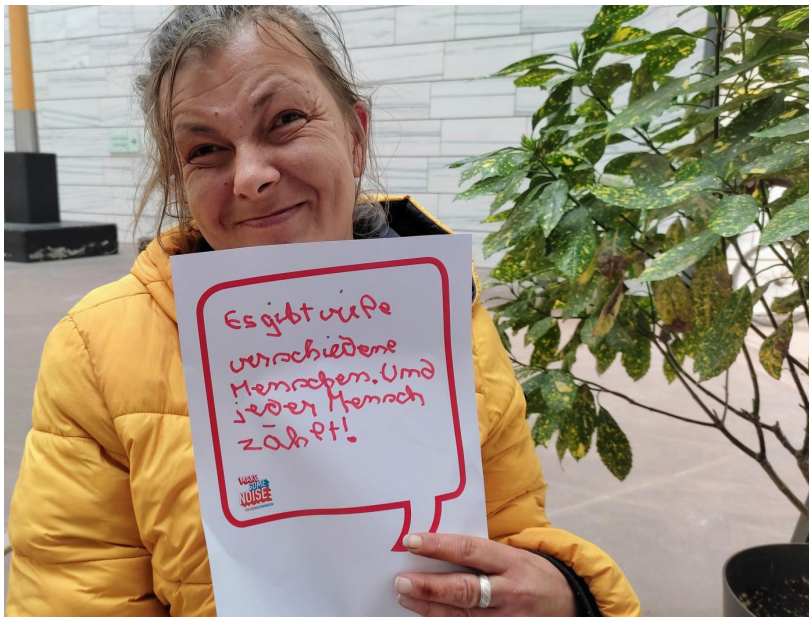 Es gibt viele
verschiedene
Menschen. Und
jeder Mensch
zählt!
MAKE
SOME
NOISE